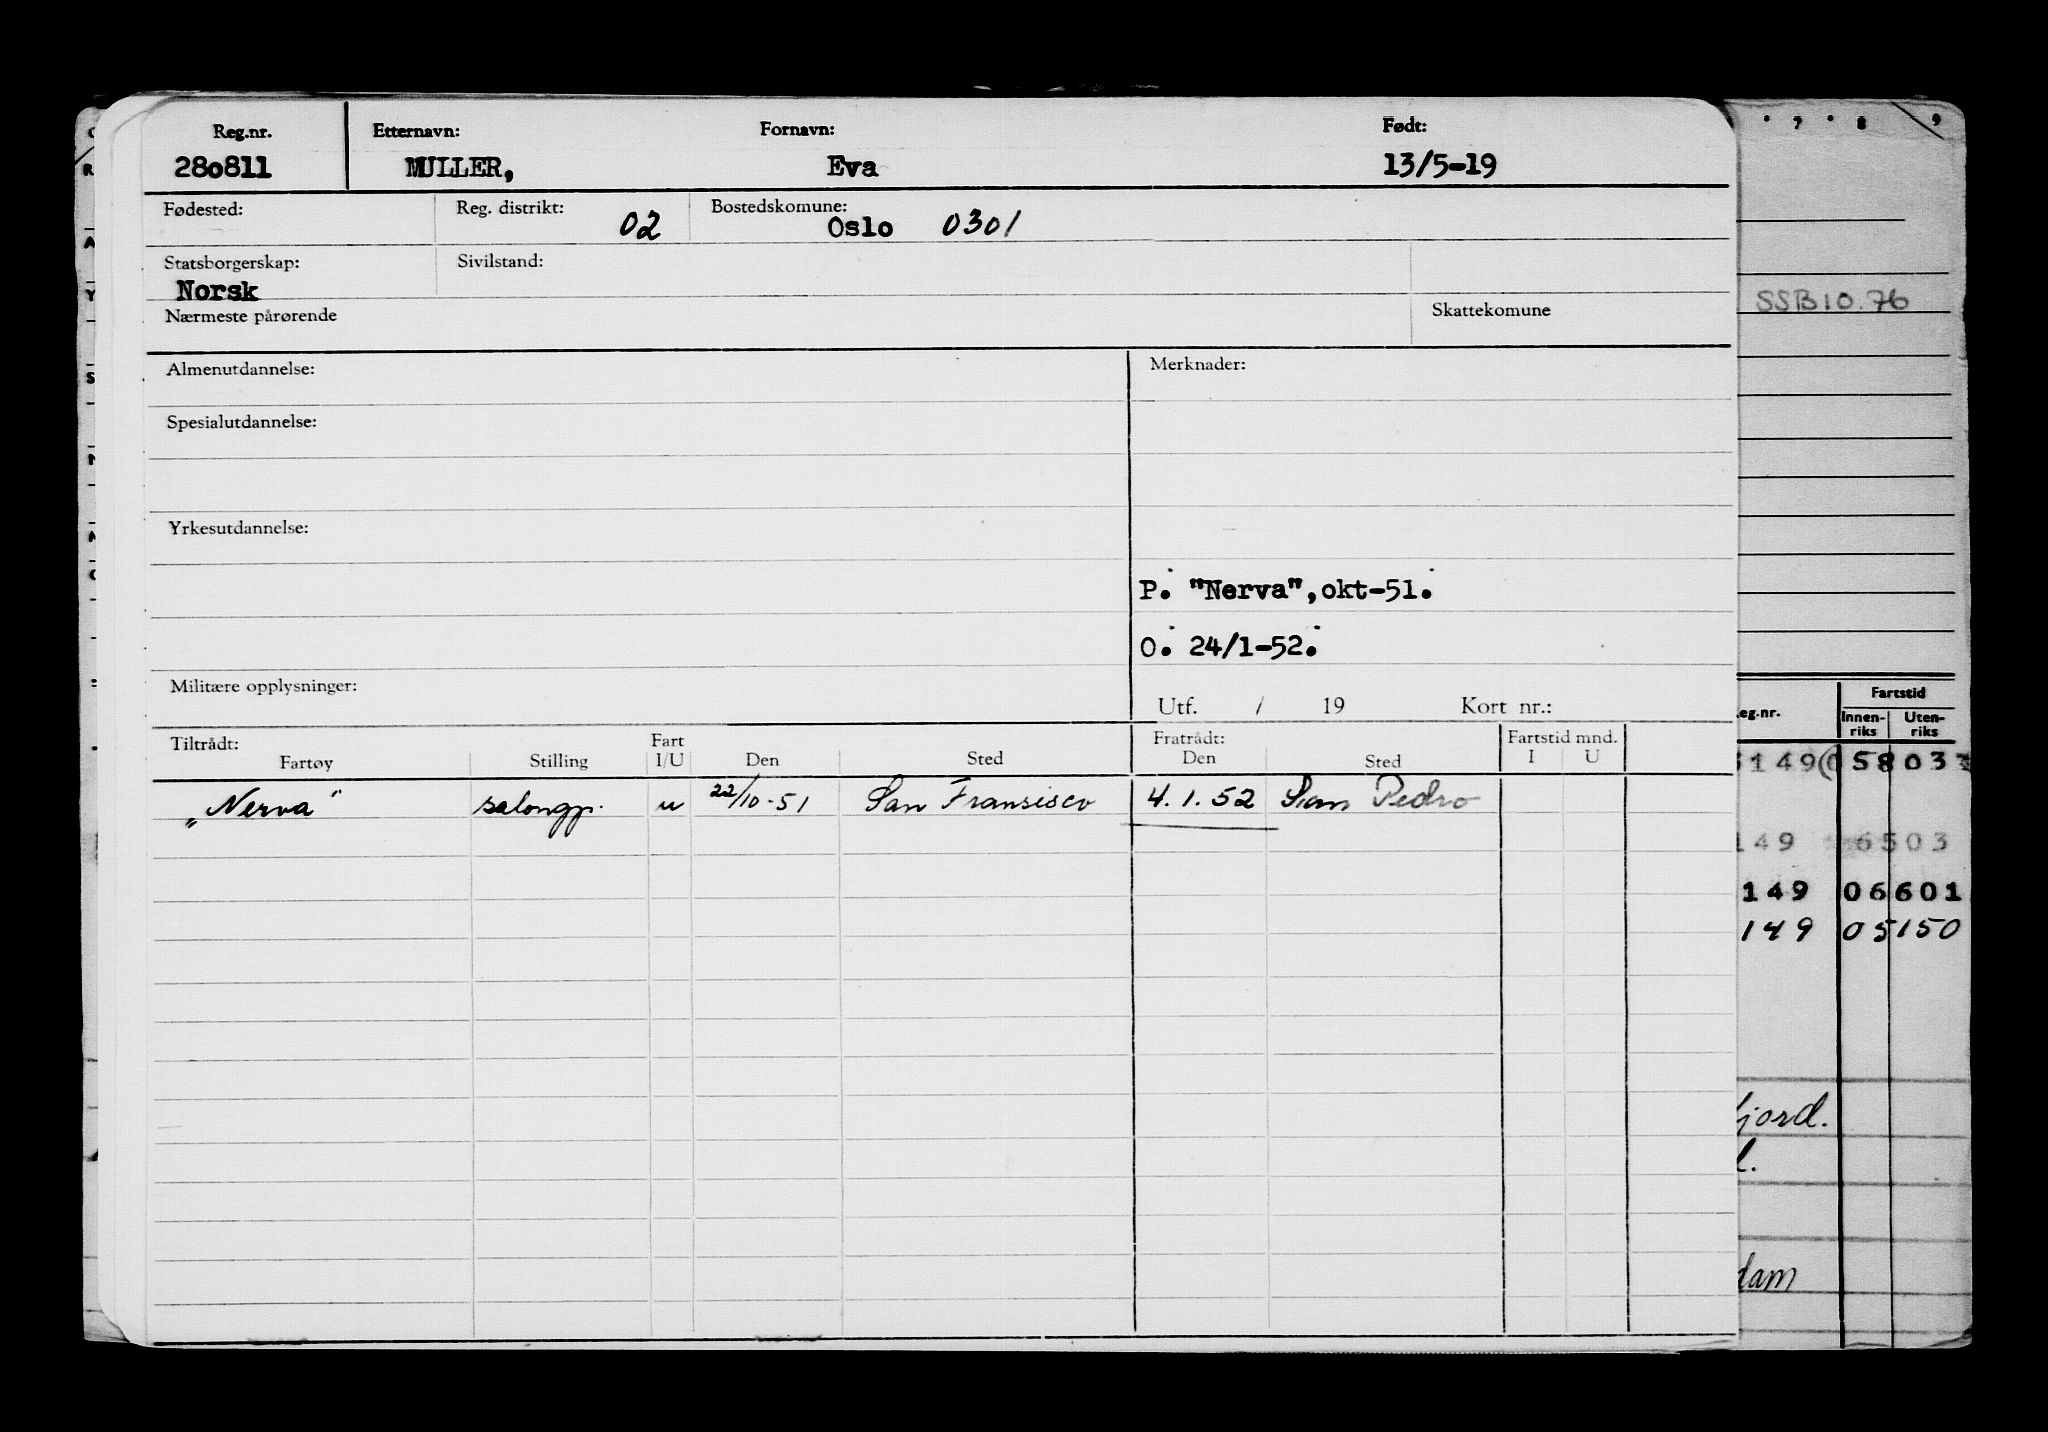 Reg.nr. Etternavn: Fornavn: Født:
280811 MULLER, Eva 13/5-19
Fødested: Reg. distrikt: 02 Bostedskomune: Oslo 0301
Statsborgerskap: Sivilstand:
Norsk
Nærmeste pårørende Skattekomune
Almenutdannelse: Merknader:
Spesialutdannelse:
Yrkesutdannelse:
P. "Nerva",okt-51.
O. 24/1-52.
Militære opplysninger:
Utf. / 19 Kort nr.:
Tiltrådt: Fart Fratrådt: Fartstid mnd.
Fartøy Stilling I/U Den Sted Den Sted I U
„Nerva" salongp. u 22/10-51 San Fransisco 4.1.52 San Pedro
7 8 9
SSB10.76
Fartstid
eg.nr. Innen- Uten-
riks riks
149 58 03
149 6503
149 06601
149 05150
jord.
dam